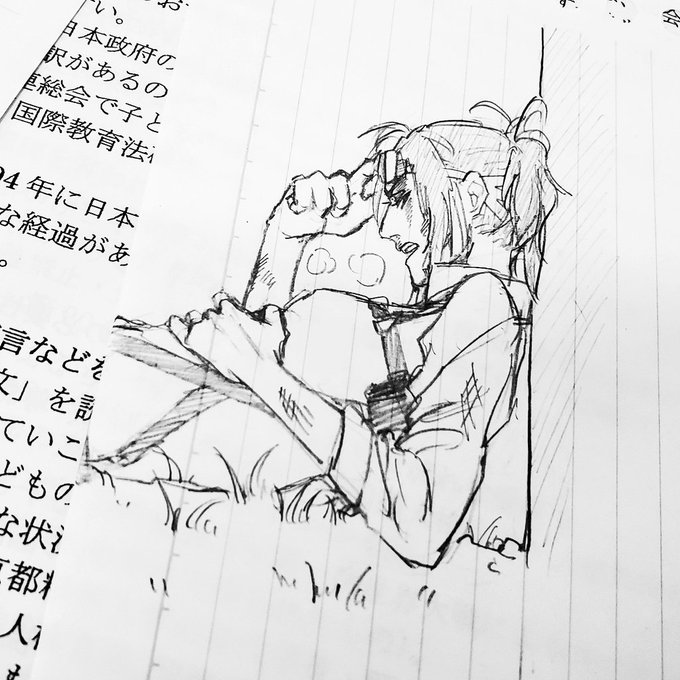 い。
日本政府の
訳があるの
連総会で子ど
国際教育法
94年に日本
な経過があ
。
言などを
文」を
ていこ
どもの
な状
京都
人
も
会